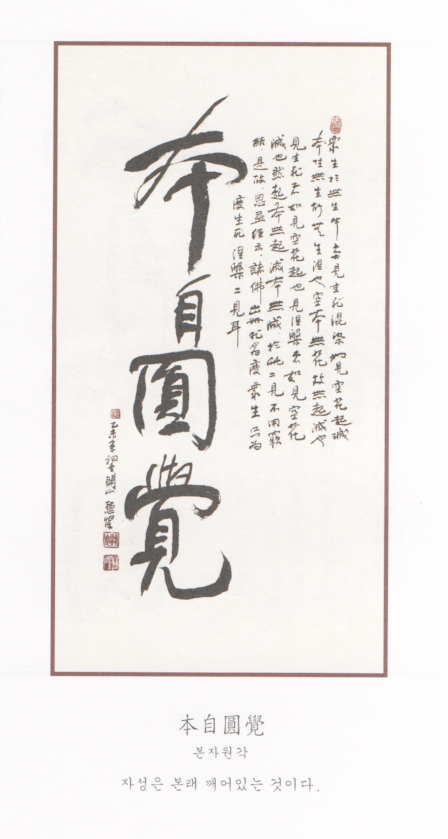 衆生於無生中妄見生死涅槃如見空花起滅
本性無生故無生涅也空本無花故無起滅也
見生死者如見空花起也見涅槃者如見空花
滅也然起本無起滅本無滅於此二見不用窮
詰是故思益經云諸佛出世非爲度衆生只爲
度生死涅槃二見耳
本自圓覺
乙未年
本自圓覺
본자원각
자성은 본래 깨어있는 것이다.